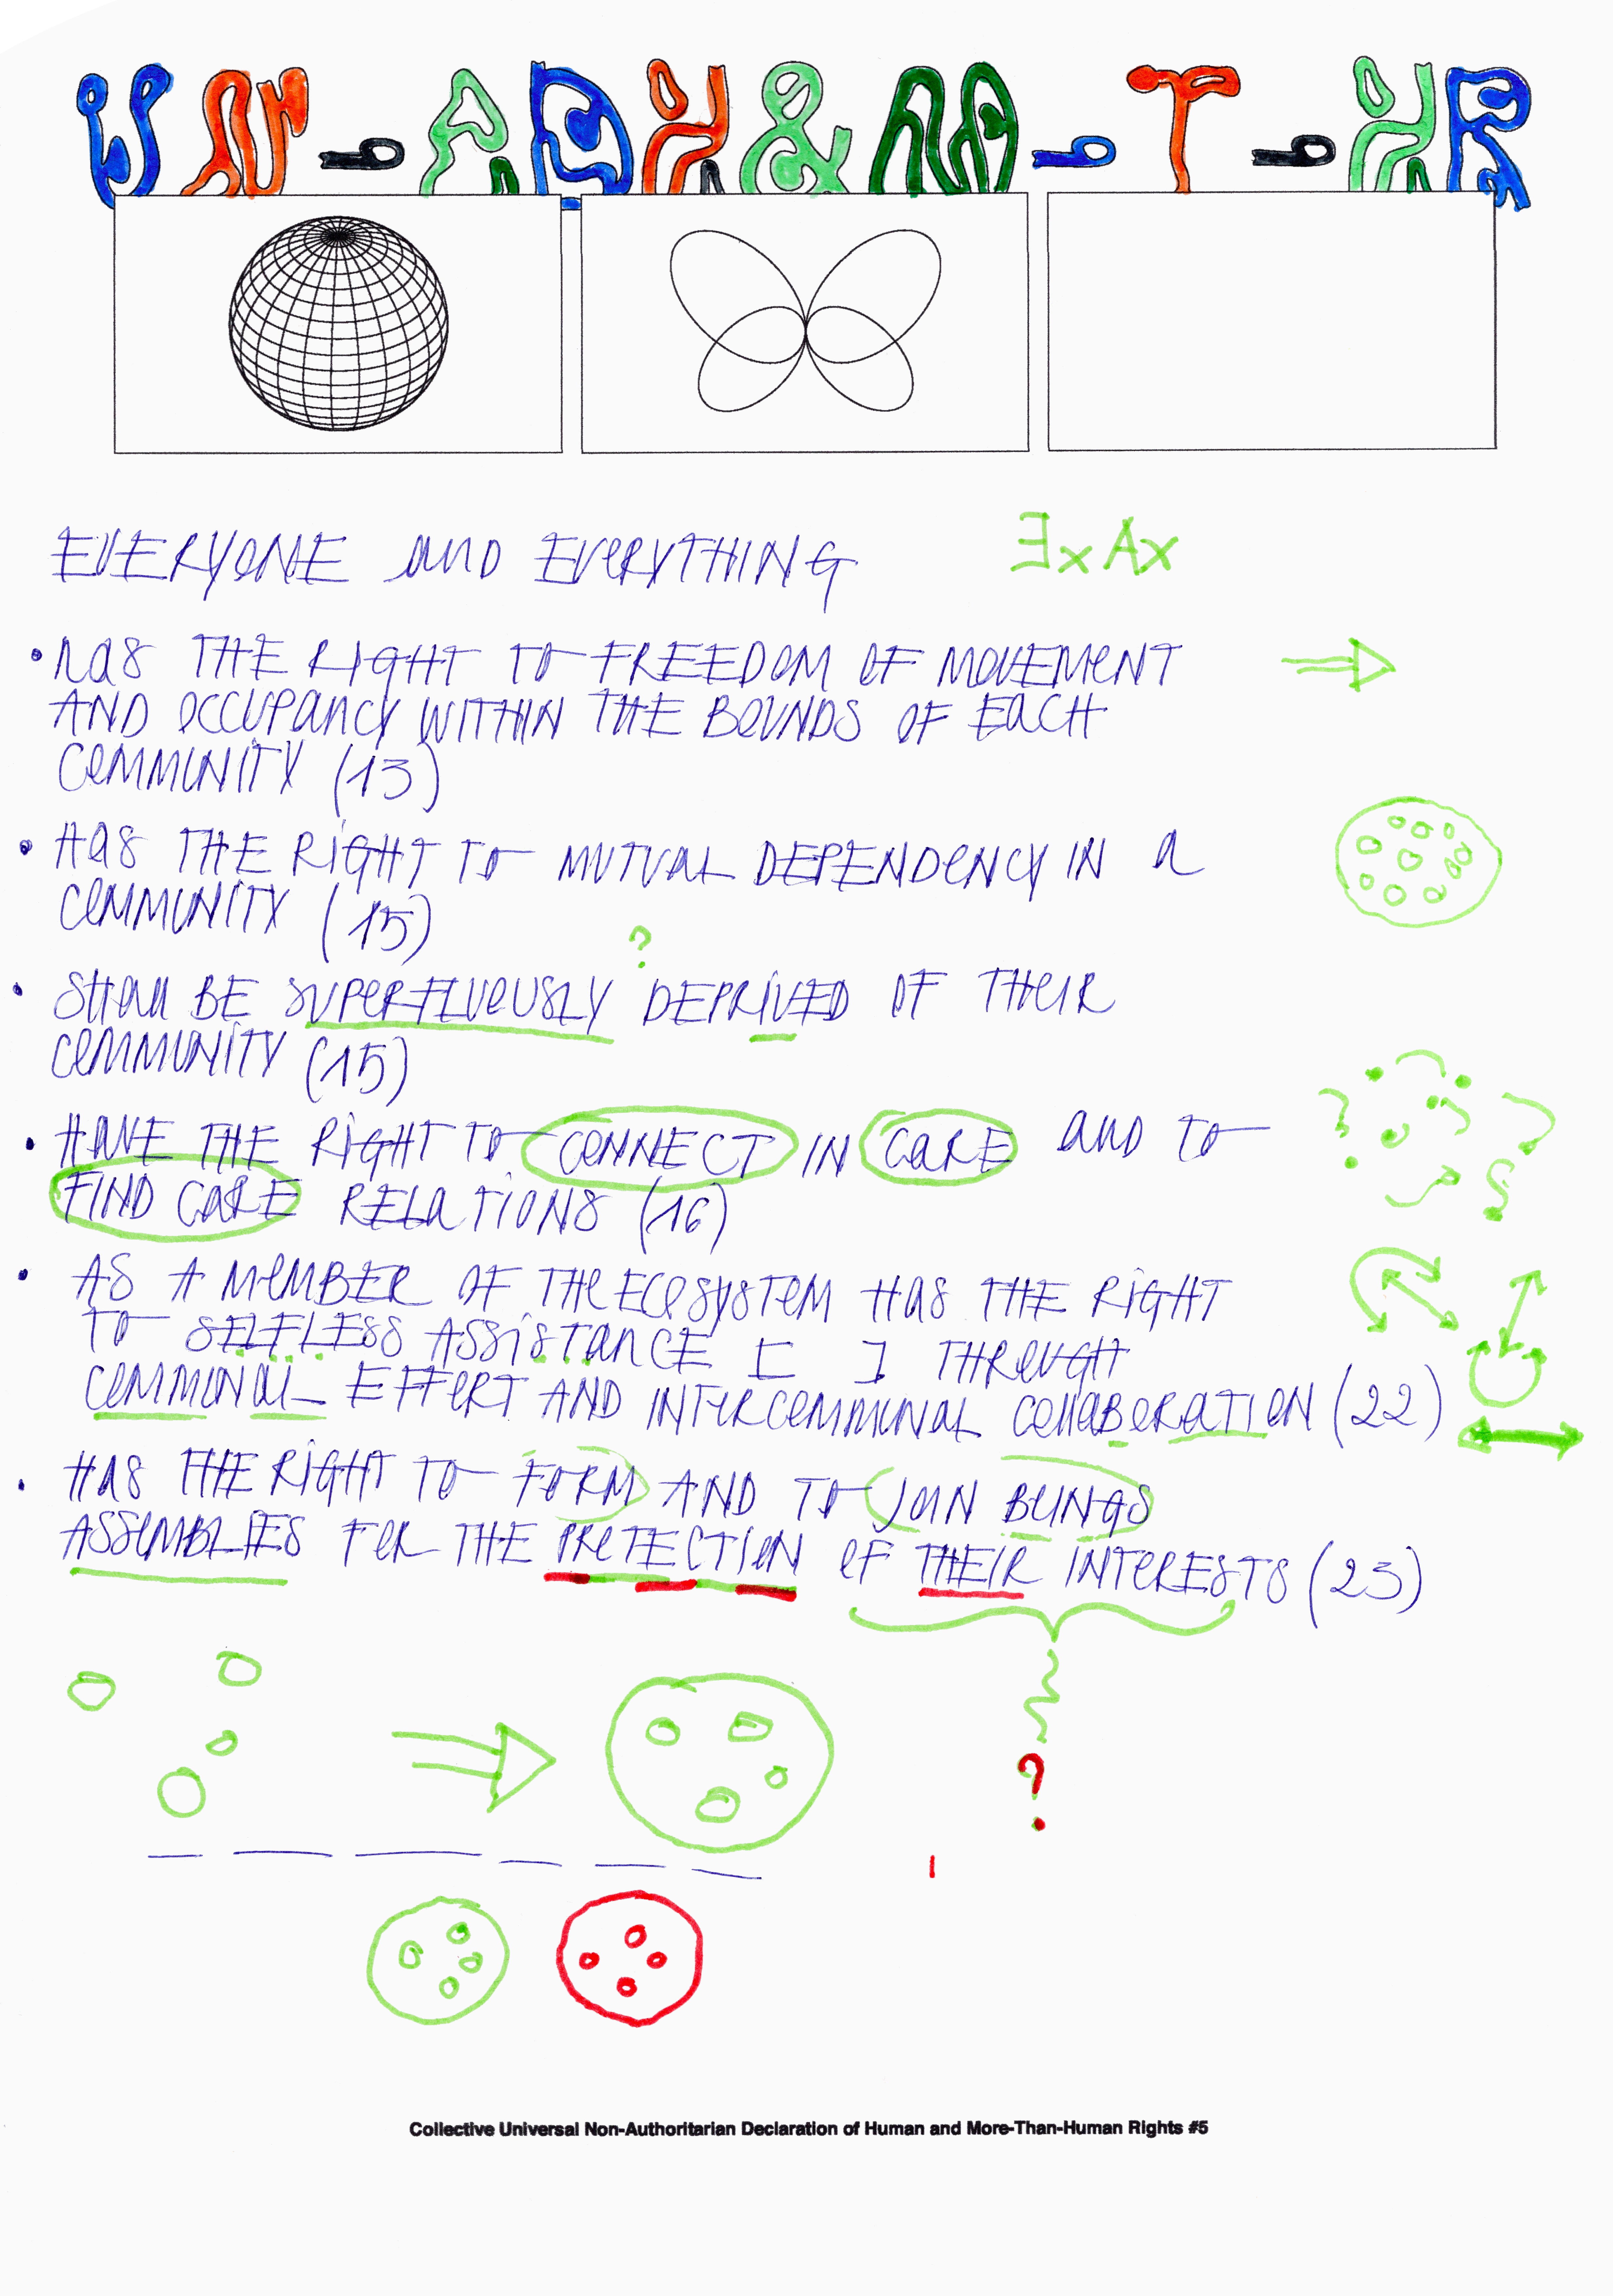 UN-ADH&M-T-HR
EVERYONE and EVERYTHING
ƎxAx
• has THE RIGHT TO FREEDOM OF MOVEMENT
AND OCCUPANCY WITHIN THE BOUNDS OF EACH
COMMUNITY (13)
• HAS THE RIGHT TO MUTUAL DEPENDENCY IN a
COMMUNITY (15)
?
• SHall BE SUPERFLUOUSLY DEPRIVED OF THEIR
COMMUNITY (15)
• HAVE THE RIGHT TO CONNECT IN CARE and TO
FIND CARE RELATIONS (16)
• AS A MEMBER OF THE ECOSYSTEM HAS THE RIGHT
TO SELFLESS ASSISTANCE [ ] THROUGH
COMMUNAL EFFORT AND INTERCOMMUNAL COLLABORATION (22)
• HAS THE RIGHT TO FORM AND TO JOIN BEINGS
ASSEMBLIES FOR THE PROTECTION OF THEIR INTERESTS (23)
?
Collective Universal Non-Authoritarian Declaration of Human and More-Than-Human Rights #5